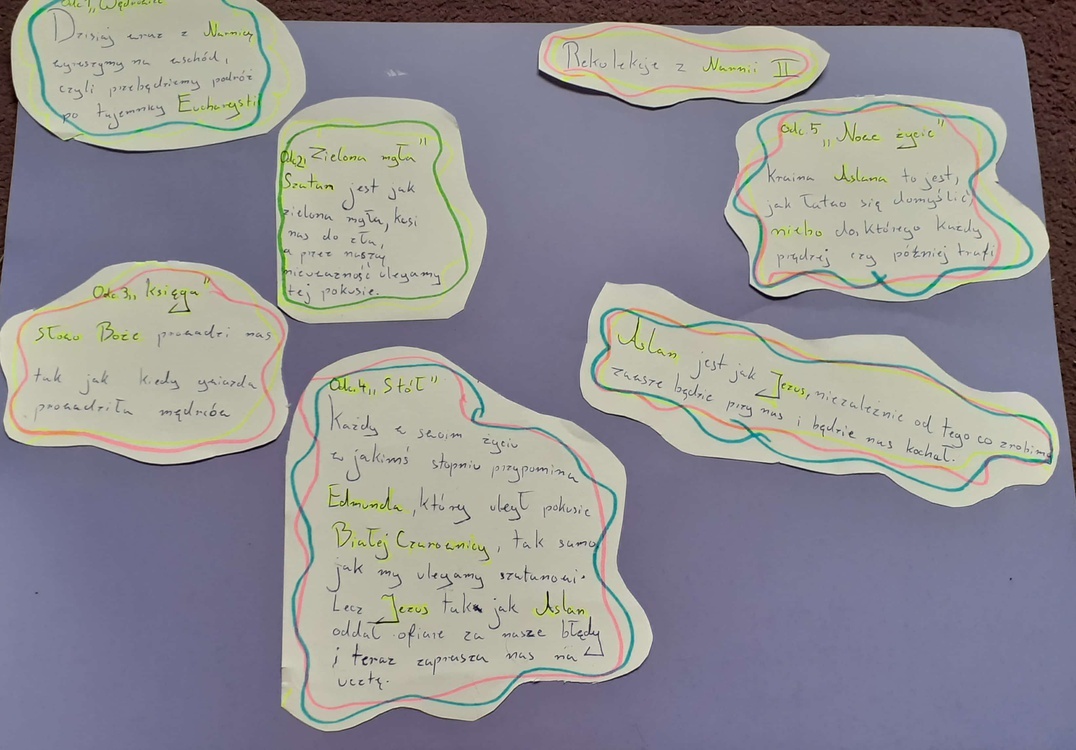 Rekolekcje z Narnii II
Odc. 1 „Wędrowiec
Dzisiaj wraz z Narnicy
wyruszymy na wschód,
czyli przebędziemy podróż
po tajemnicy Eucharysti
Odc. 2 „Zielona mgła"
Szatan jest jak
zielona mgła, kusi
nas do zła,
a przez naszą
nieuważność ulegamy
tej pokusie.
Odc. 3 „Księga"
Słowo Boże prowadzi nas
tak jak kiedy gwiazda
prowadziła mędrców
Odc. 4 „Stół"
Każdy w swoim życiu
w jakimś stopniu przypomina
Edmunda, który uległ pokusie
Białej Czarownicy, tak samo
jak my ulegamy szatanowi.
Lecz Jezus tak jak Aslan
oddał ofiarę za nasze błędy
i teraz zaprasza nas na
ucztę.
Odc. 5 „Nowe życie"
Kraina Aslana to jest,
jak łatwo się domyślić,
niebo do którego każdy
prędzej czy później trafi
Aslan jest jak Jezus, niezależnie od tego co zrobimy
zawsze będzie przy nas i będzie nas kochał.